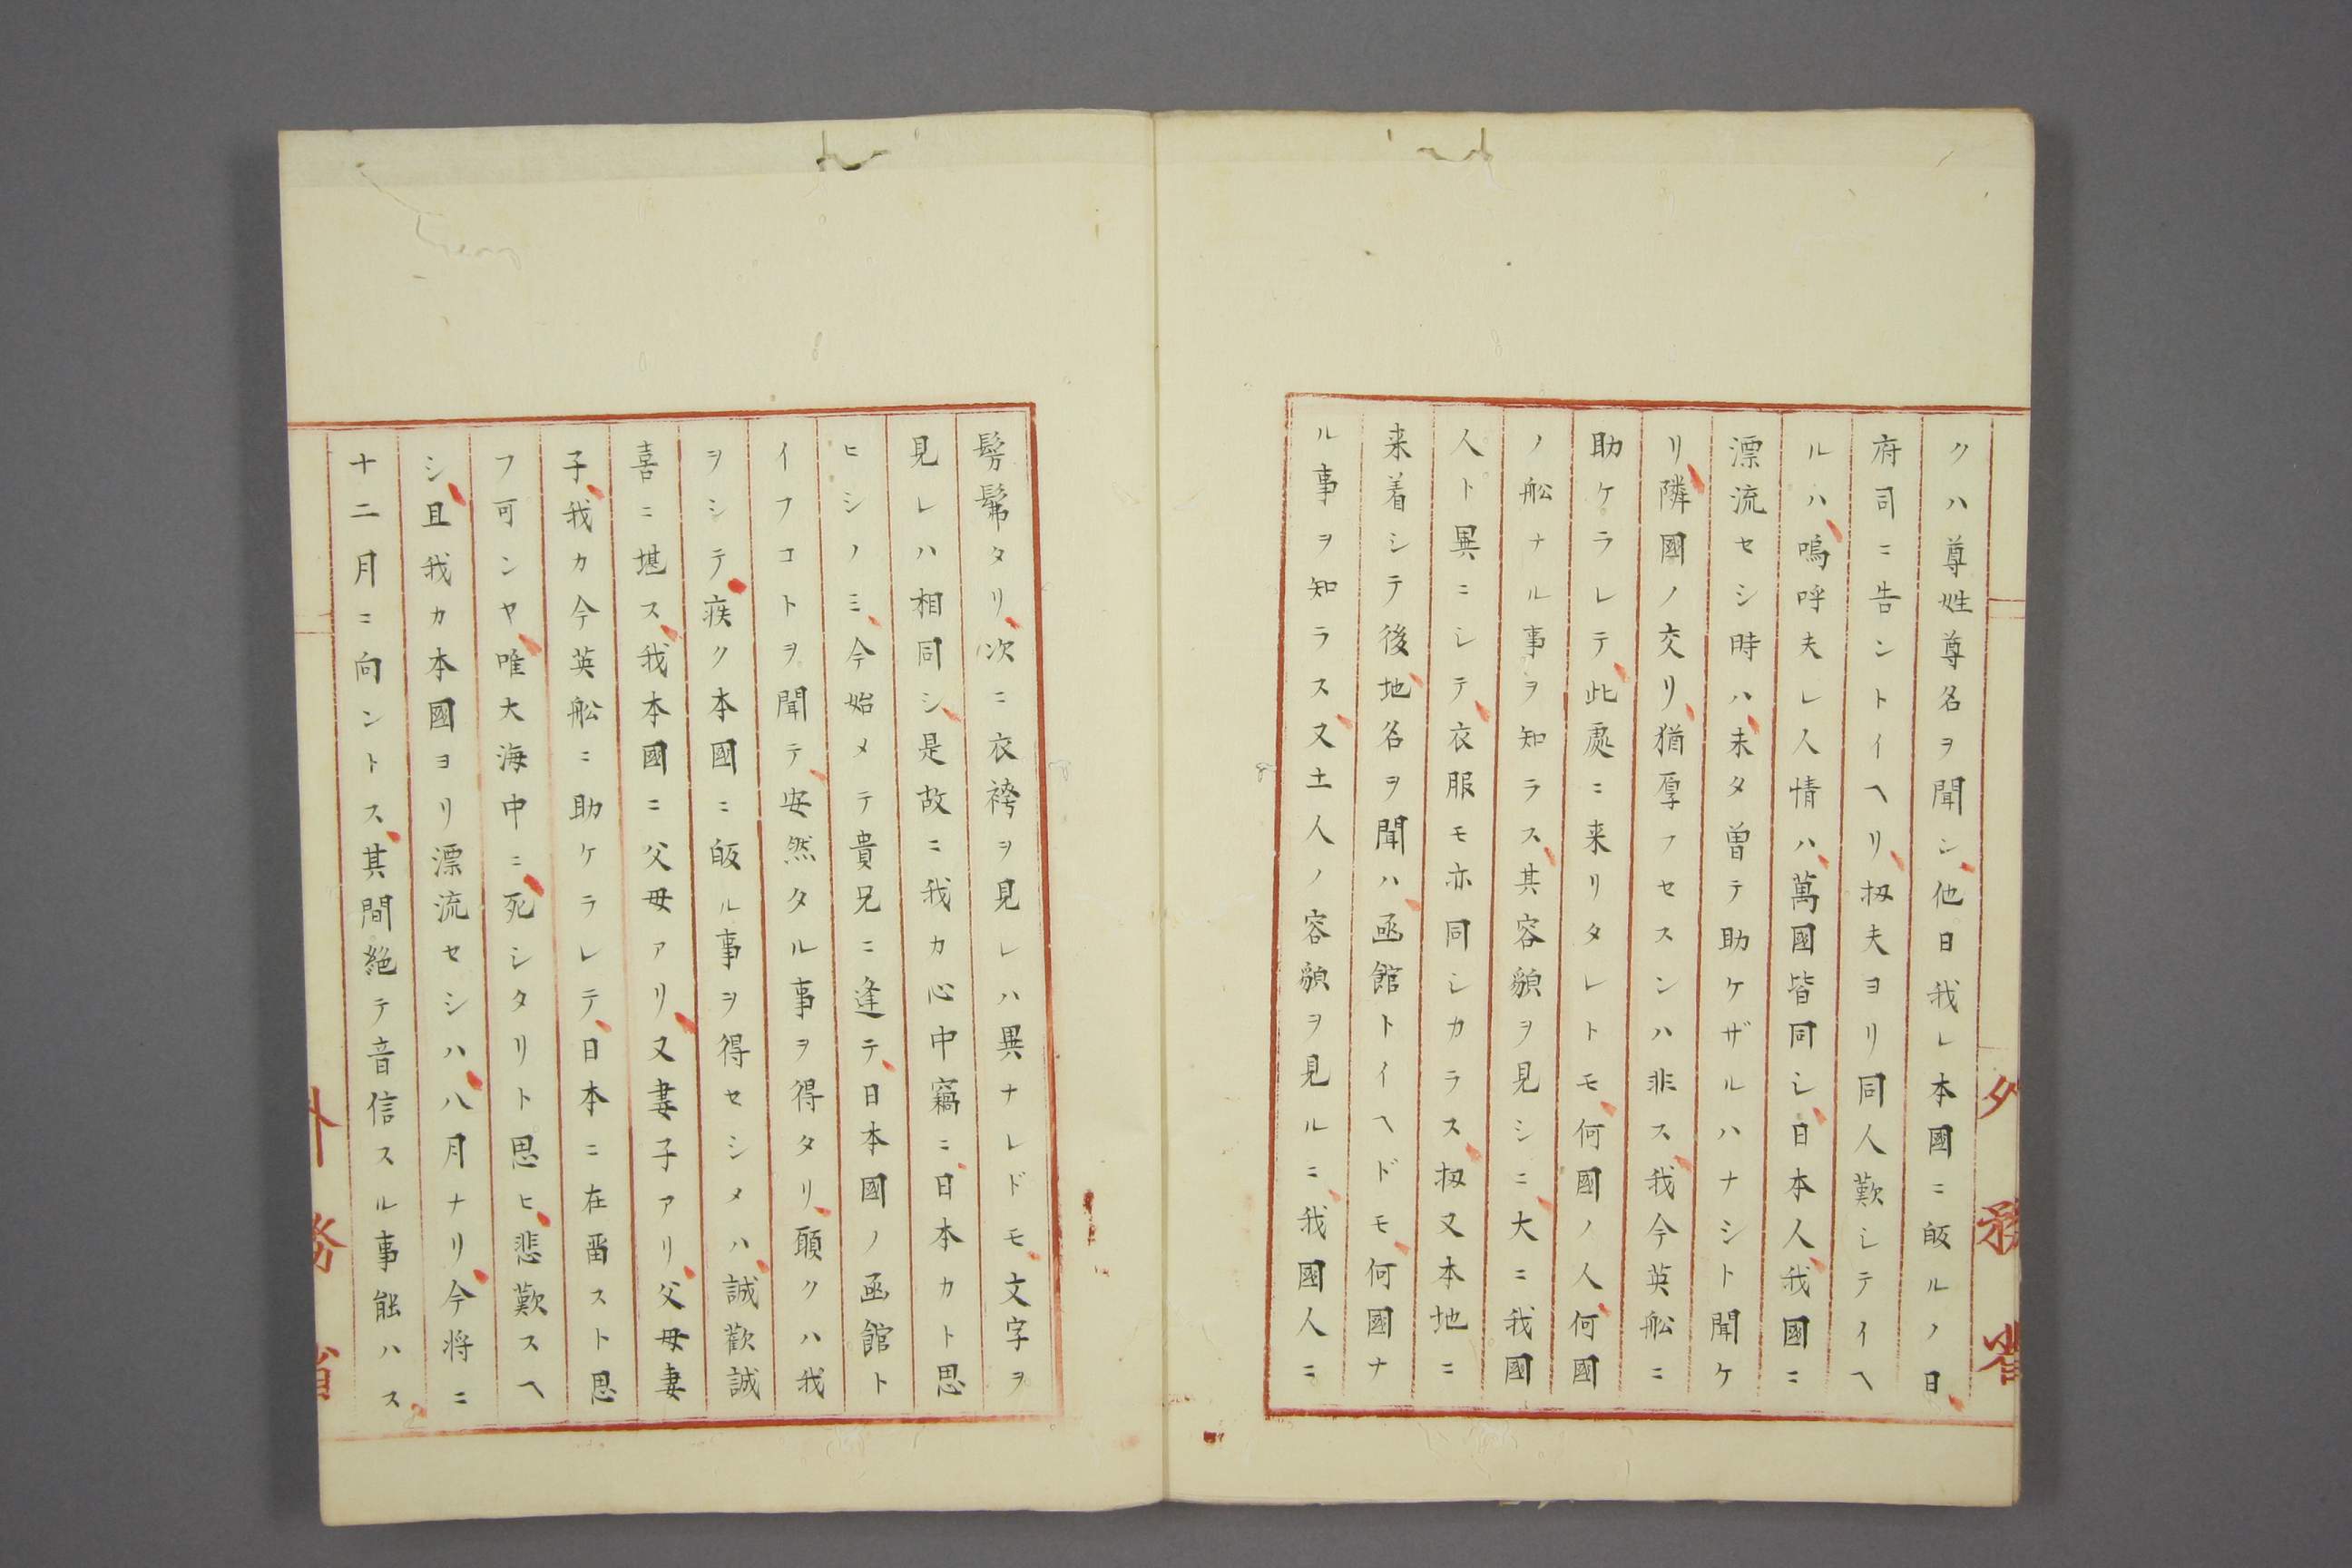 クハ尊姓尊名ヲ聞ン、他日我レ本國ニ皈ルノ日、
府司ニ告ントイヘリ、扨夫ヨリ同人歎シテイヘ
ルハ、嗚呼夫レ人情ハ、萬國皆同シ、日本人、我國ニ
漂流セシ時ハ、未タ曽テ助ケザルハナシト聞ケ
リ、隣國ノ交リ、猶厚フセスンハ非ス、我今英舩ニ
助ケラレテ、此處ニ来リタレトモ、何國ノ人、何國
ノ舩ナル事ヲ知ラス、其容貌ヲ見シニ、大ニ我國
人ト異ニシテ、衣服モ亦同シカラス、扨又本地ニ
来着シテ後、地名ヲ聞ハ、函館トイヘドモ、何國ナ
ル事ヲ知ラス、又土人ノ容貌ヲ見ルニ、我國人ニ
髣髴タリ、次ニ衣袴ヲ見レハ異ナレドモ、文字ヲ
見レハ相同シ、是故ニ我カ心中竊ニ、日本カト思
ヒシノミ、今始メテ貴兄ニ逢テ、日本國ノ函館ト
イフコトヲ聞テ、安然タル事ヲ得タリ、願クハ我
ヲシテ、疾ク本國ニ皈ル事ヲ得セシメハ、誠歡誠
喜ニ堪ス、我本國ニ父母アリ、又妻子アリ、父母妻
子、我カ今英舩ニ助ケラレテ、日本ニ在畱スト思
フ可ンヤ、唯大海中ニ、死シタリト思ヒ、悲歎スヘ
シ、且我カ本國ヨリ漂流セシハ、八月ナリ、今将ニ
十二月ニ向ントス、其間絶テ音信スル事能ハス、
外務省
外務省